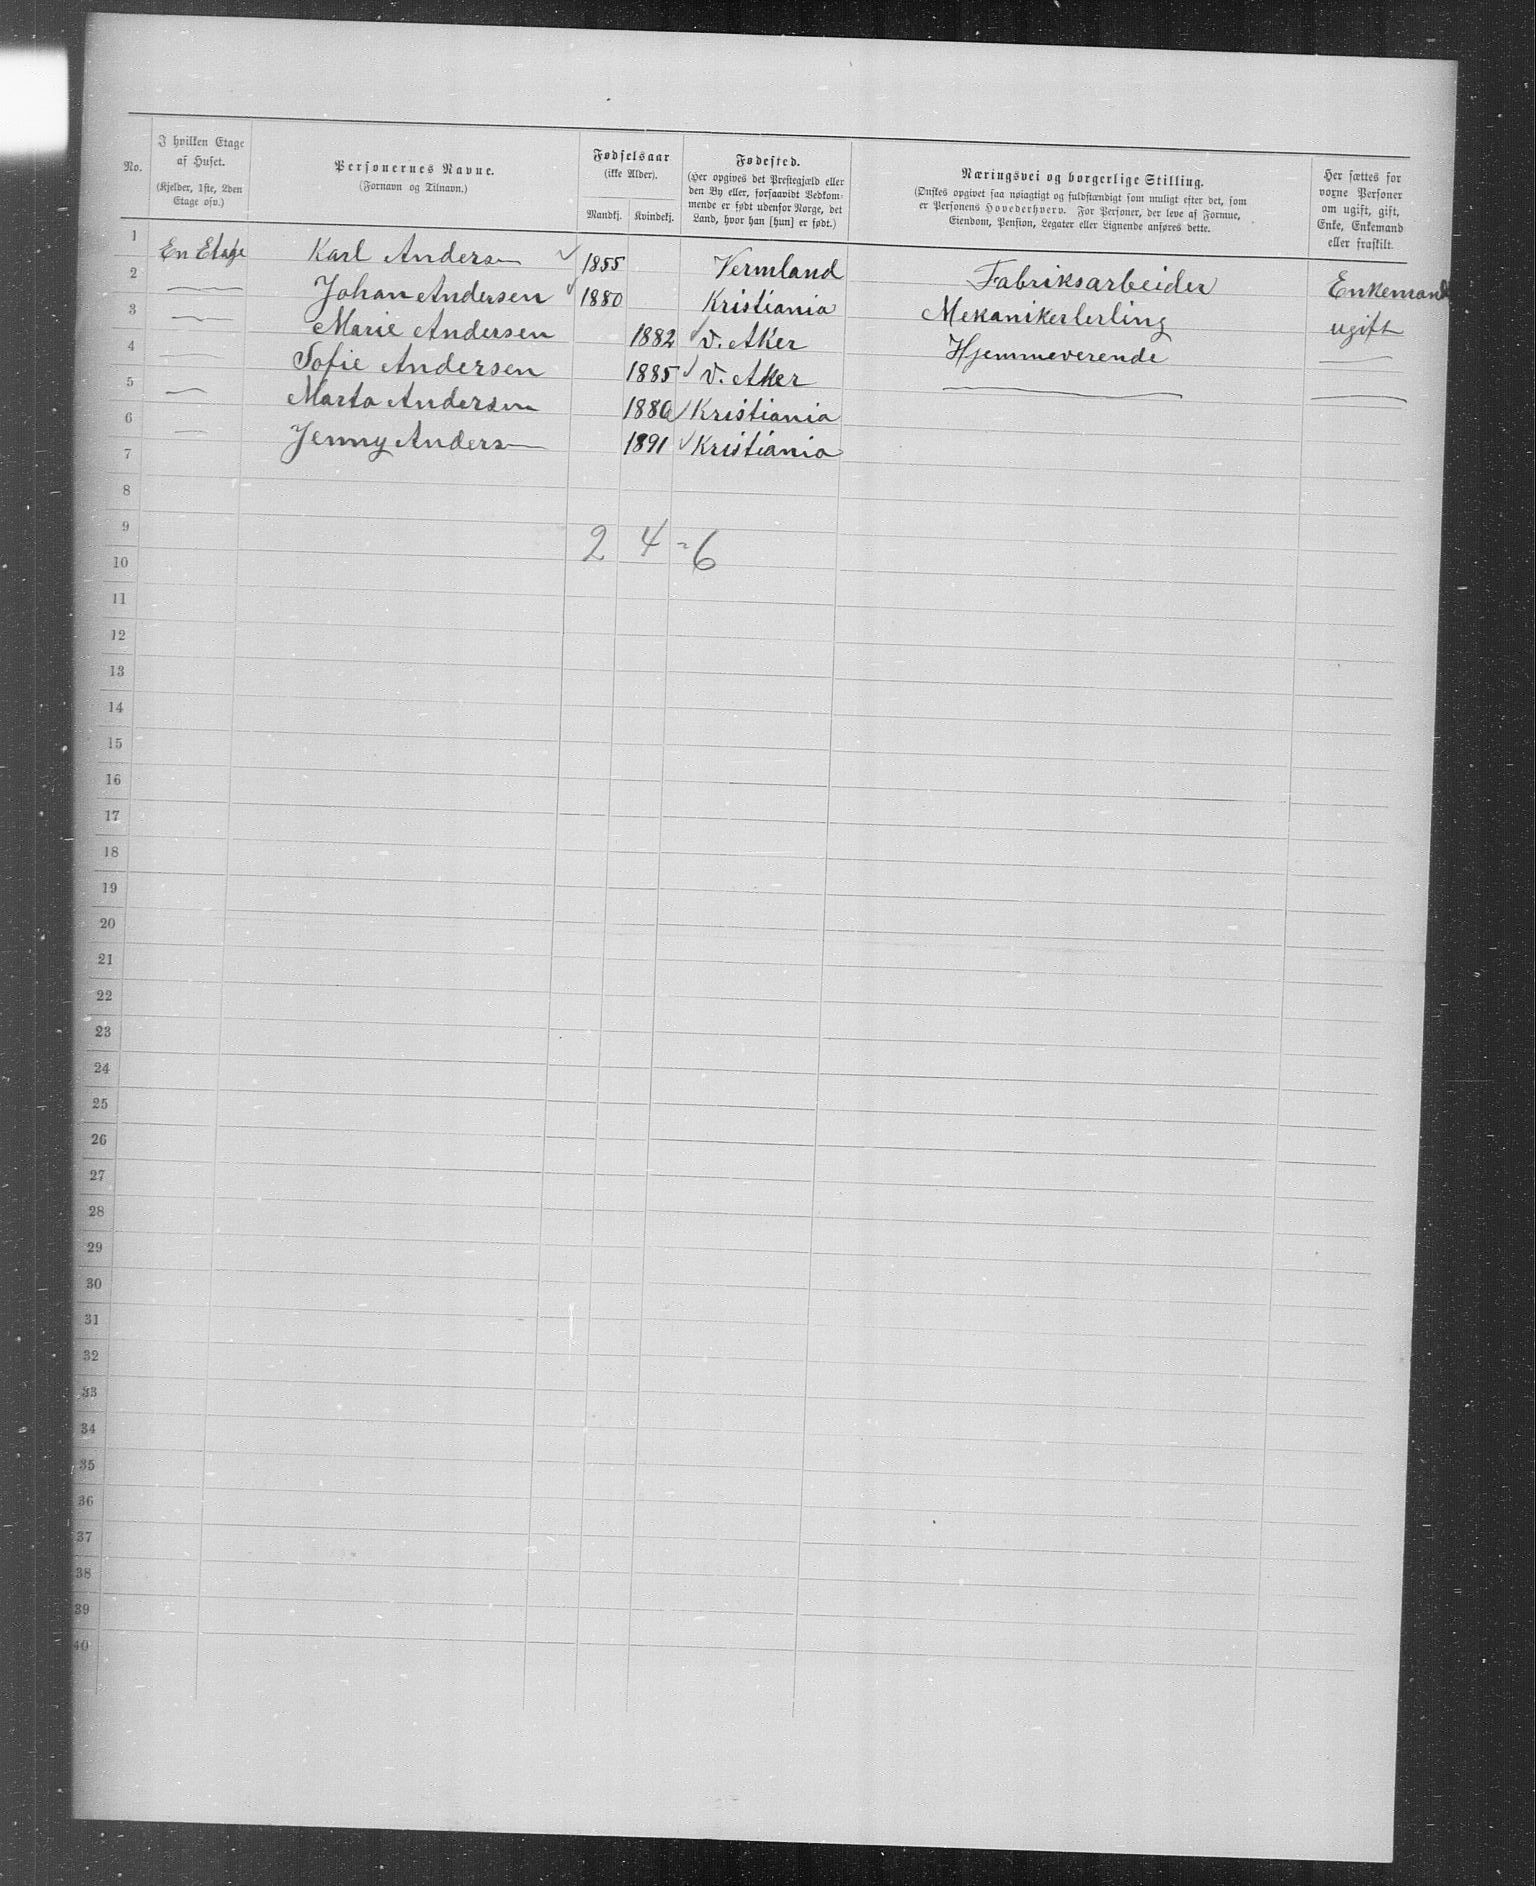 No.
I hvilken Etage
af Huset.
(Kjelder, 1ste, 2den
Etage osv.)
Personernes Navne.
(Fornavn og Tilnavn.)
Fødselsaar
(ikke Alder).
Mandkj. Kvindekj.
Fødested.
(Her opgives det Prestegjæld eller
den By eller, forsaavidt Vedkom-
mende er født udenfor Norge, det
Land, hvor han [hun] er født.)
Næringsvei og borgerlige Stilling.
(Ønskes opgivet saa nøiagtigt og fuldstændigt som muligt efter det, som
er Personens Hovederhverv. For Personer, der leve af Formue,
Eiendom, Pension, Legater eller Lignende anføres dette.
Her sættes for
voxne Personer
om ugift, gift,
Enke, Enkemand
eller fraskilt.
1 En Etage Karl Andersen ✓ 1855 Vermland Fabriksarbeider Enkemand
2 — Johan Andersen ✓ 1880 Kristiania Mekanikerlerling ugift
3 — Marie Andersen 1882 ✓ V. Aker Hjemmeverende —
4 — Sofie Andersen 1885 ✓ V. Aker — —
5 — Marta Andersen ✓ Kristiania
6 — Jenny Andersen 1891 ✓ Kristiania
7
8
9 2 4 = 6
10
11
12
13
14
15
16
17
18
19
20
21
22
23
24
25
26
27
28
29
30
31
32
33
34
35
36
37
38
39
40